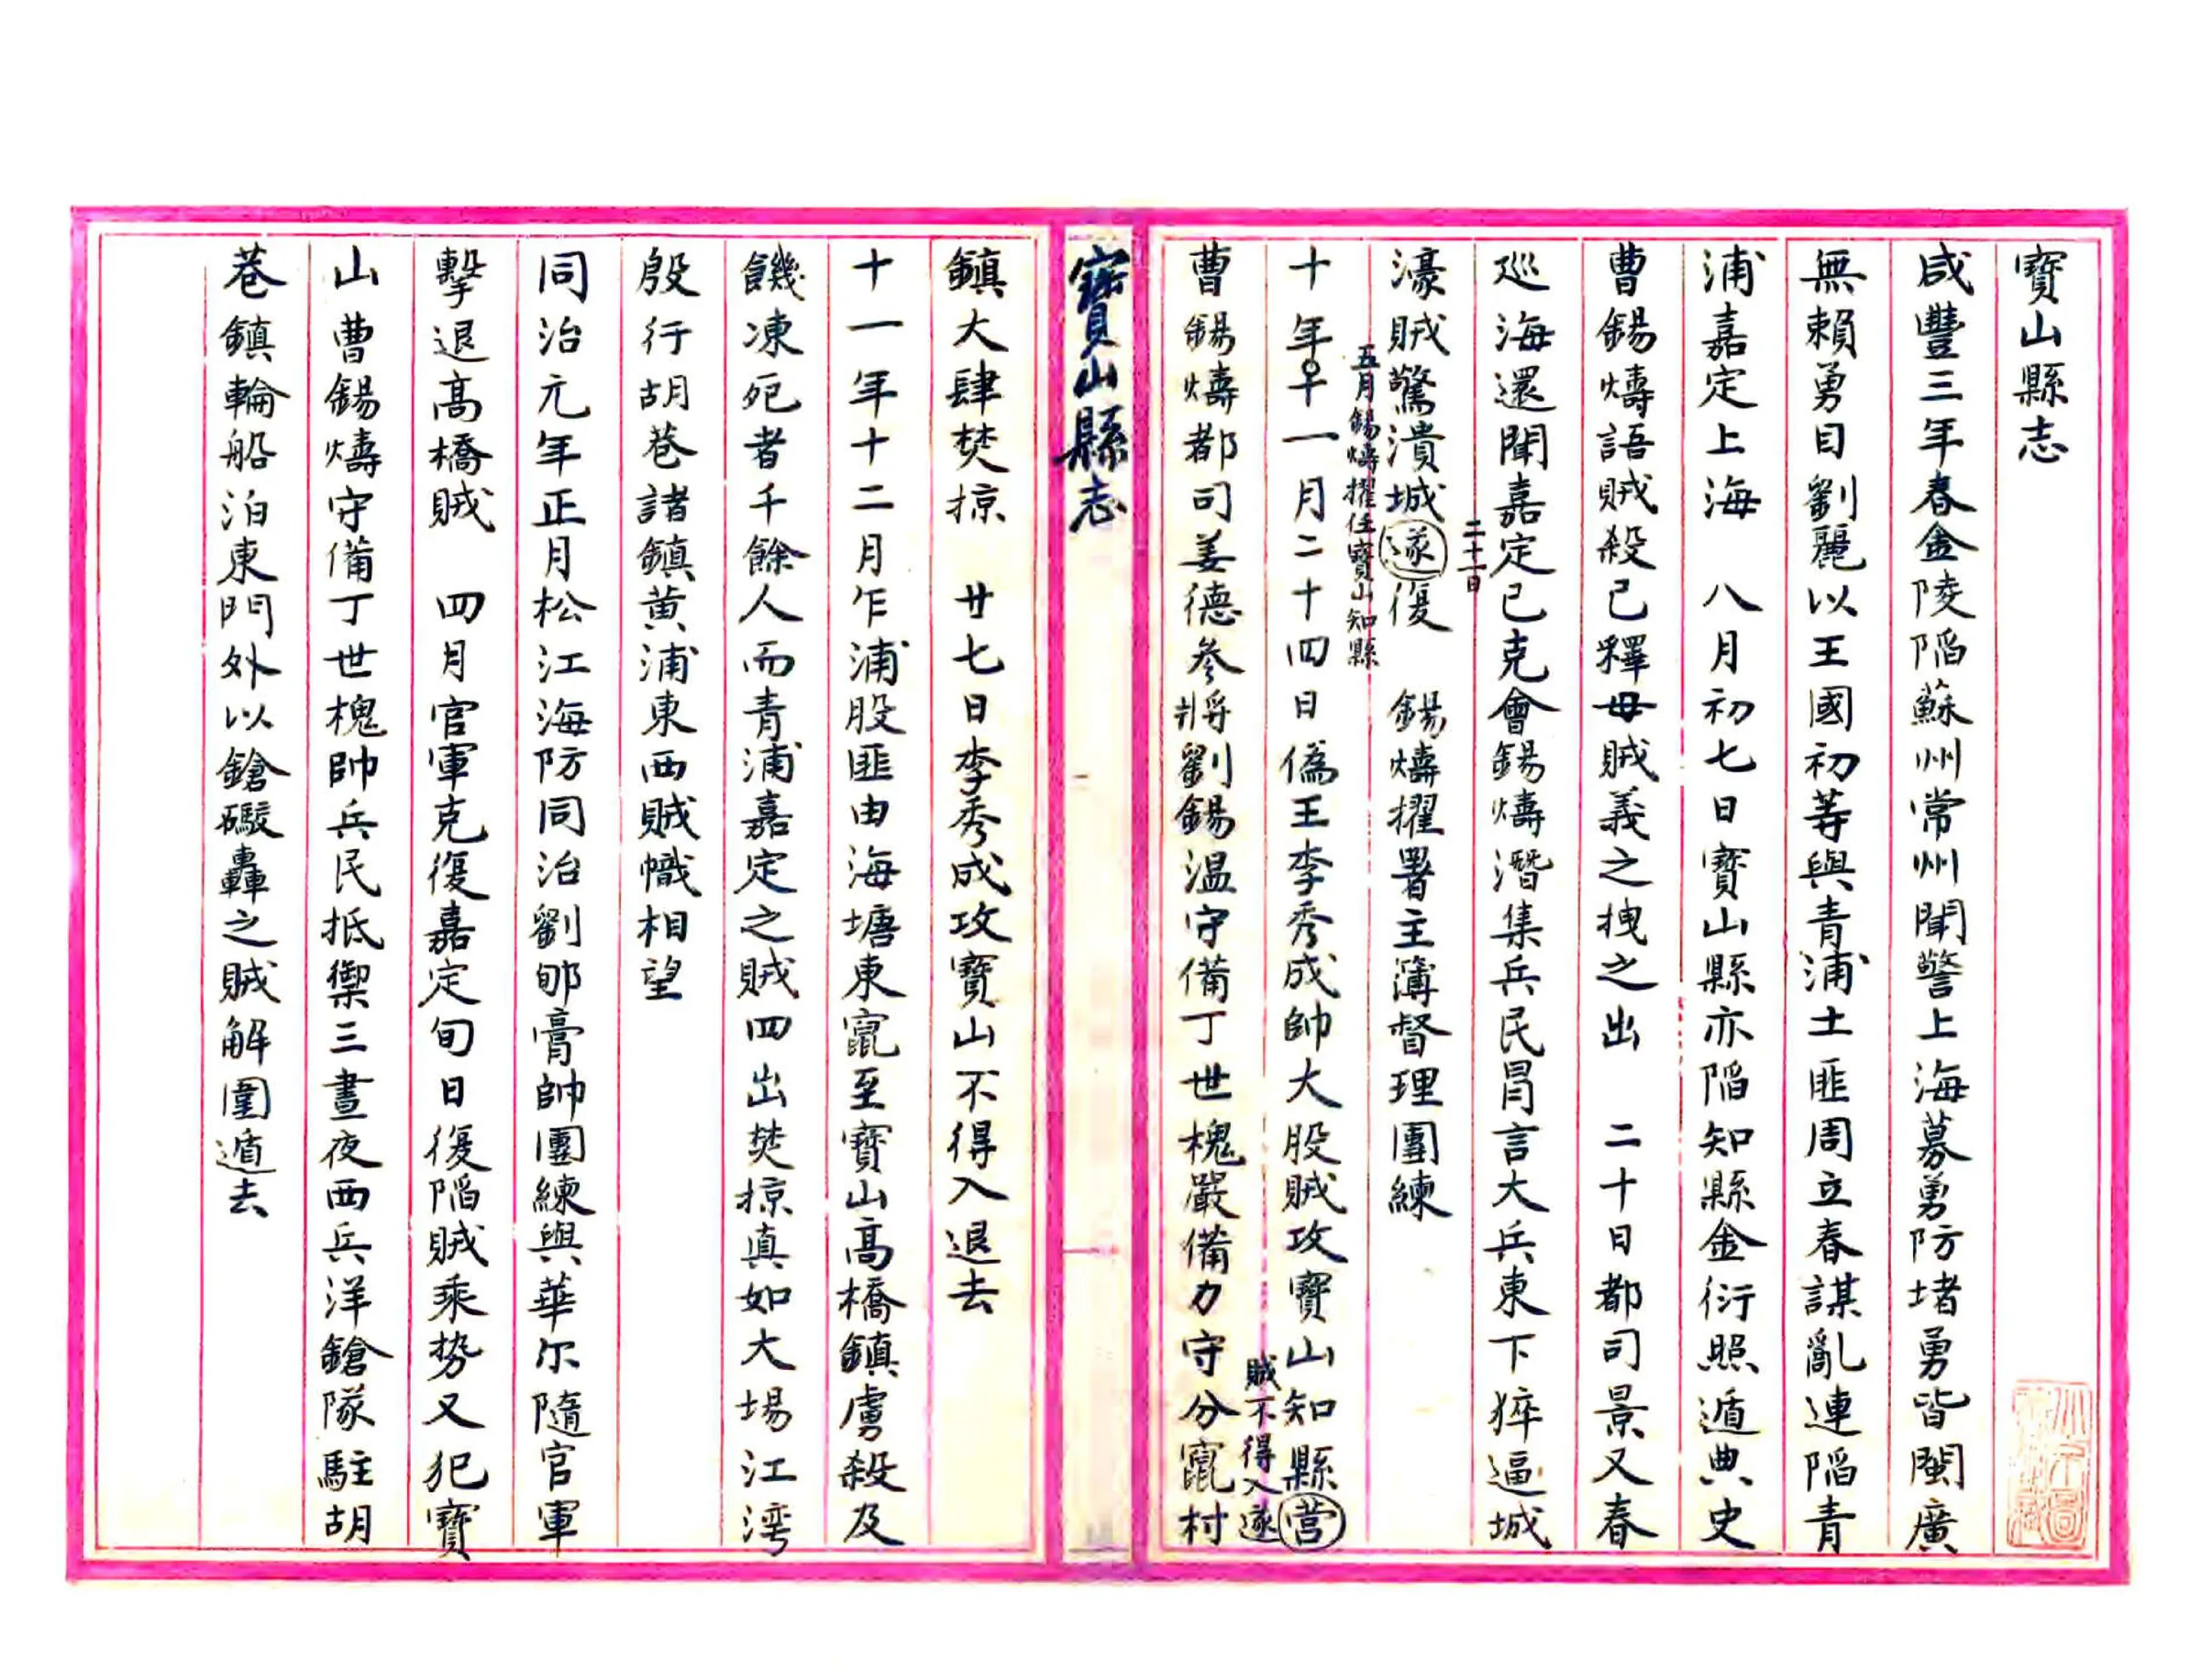 寶山縣志
咸豐三年春金陵陷蘇州常州聞警上海募勇防堵勇皆閩廣
無賴勇目劉麗以王國初等與青浦土匪周立春謀亂連陷青
浦嘉定上海　八月初七日寶山縣亦陷知縣金衍照遁典史
曹錫燾語賊殺己釋母賊義之拽之出　二十日都司景又春
巡海還聞嘉定已克會錫燾潛集兵民冒言大兵東下猝逼城
二十一日
濠賊驚潰城遂復　錫燾擢署主簿督理團練
五月錫燾擢任寶山知縣
十年十一月二十四日偽王李秀成帥大股賊攻寶山知縣營
賊不得入遂
曹錫燾都司姜德參將劉錫温守備丁世槐嚴備力守分竄村
寶山縣志
鎮大肆焚掠　廿七日李秀成攻寶山不得入退去
十一年十二月乍浦股匪由海塘東竄至寶山高橋鎮虜殺及
饑凍死者千餘人而青浦嘉定之賊四出焚掠真如大場江湾
殷行胡巷諸鎮黄浦東西賊幟相望
同治元年正月松江海防同治劉郇膏帥團練與華尔隨官軍
擊退高橋賊　四月官軍克復嘉定旬日復陷賊乘势又犯寶
山曹錫燾守備丁世槐帥兵民抵禦三晝夜西兵洋鎗隊駐胡
巷鎮輪船泊東門外以鎗礮轟之賊解圍遁去